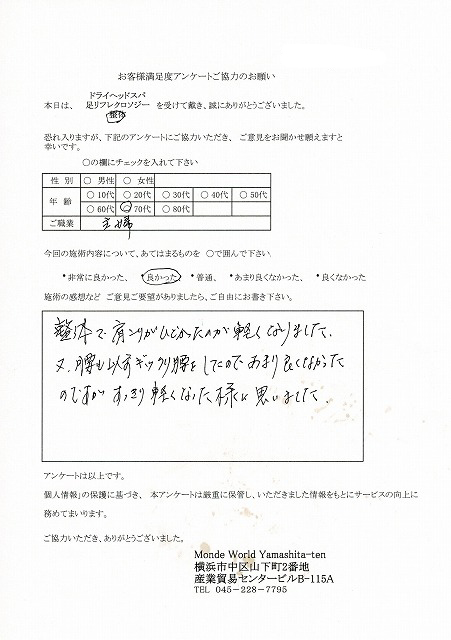 お客様満足度アンケートご協力のお願い
ドライヘッドスパ
本日は、 足リフレクロソジー を受けて戴き、誠にありがとうございました。
整体
恐れ入りますが、下記のアンケートにご協力いただき、 ご意見をお聞かせ願えますと
幸いです。
○の欄にチェックを入れて下さい
性 別 ○ 男性 ○ 女性
年 齢 ○ 10代 ○ 20代 ○ 30代 ○ 40代 ○ 50代
○ 60代 ○ 70代 ○ 80代
ご職業 主婦
今回の施術内容について、あてはまるものを ○で囲んで下さい
*非常に良かった、 *良かった、 *普通、 *あまり良くなかった、 *良くなかった
施術の感想など ご意見ご要望がありましたら、ご自由にお書き下さい。
整体で肩コリがひどかったのが軽くなりました.
又、腰も以前ギックリ腰をしてたのであまり良くなかった
のですが すっきり軽くなった様に思いました.
アンケートは以上です。
個人情報」の保護に基づき、 本アンケートは厳重に保管し、いただきました情報をもとにサービスの向上に
務めてまいります。
ご協力いただき、ありがとうございました。
Monde World Yamashita-ten
横浜市中区山下町2番地
産業貿易センタービルB-115A
TEL 045-228-7795